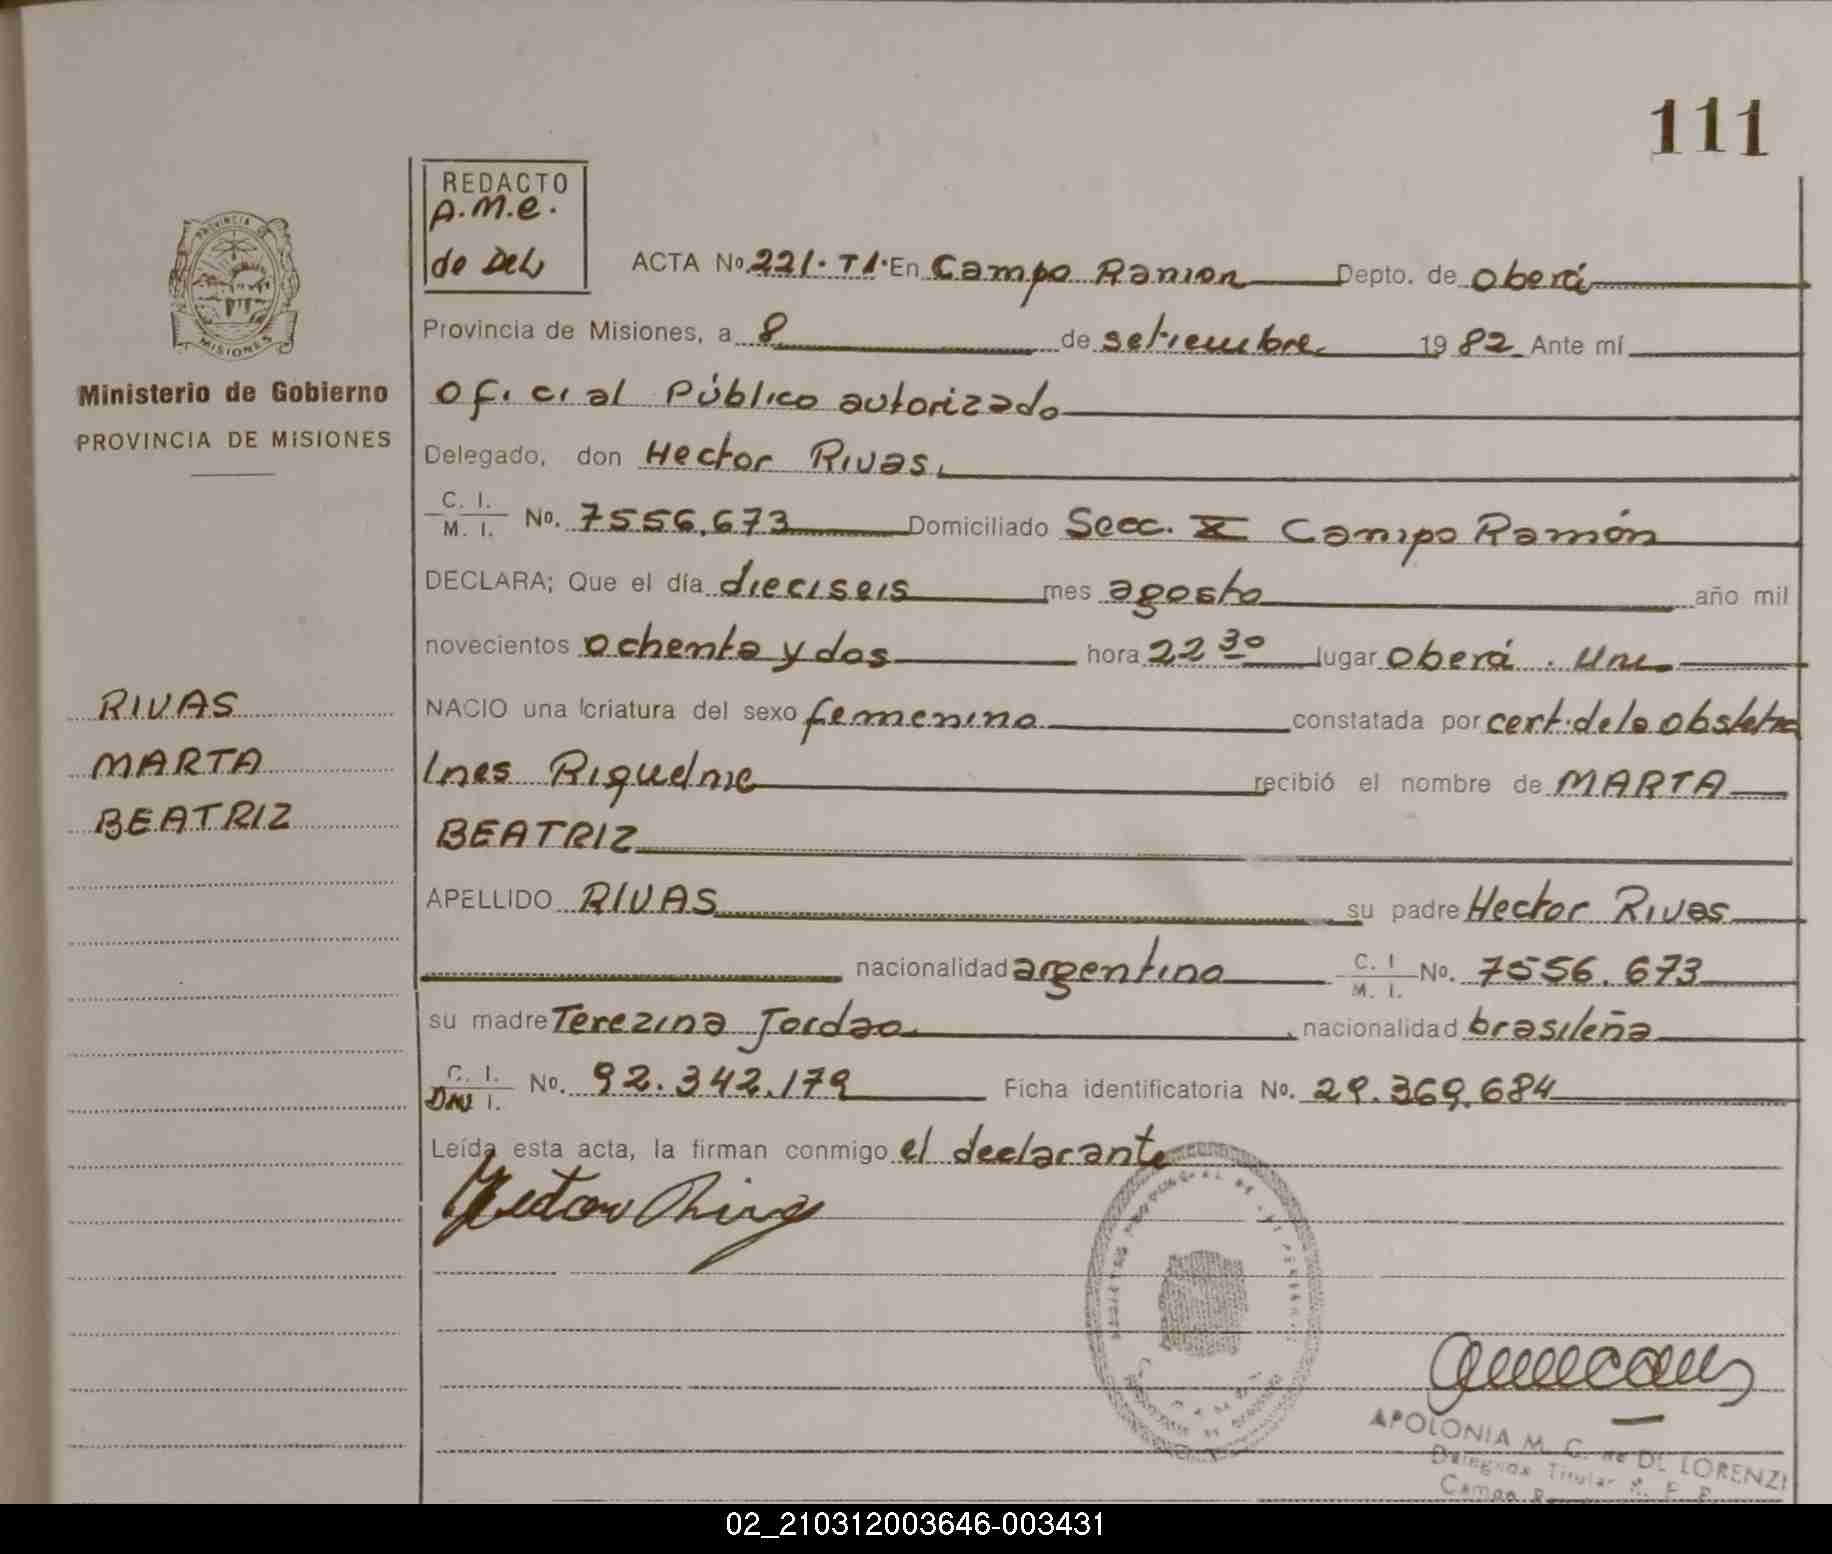 111
REDACTO
A.M.e.
de Del
ACTA No. 221. T1. En Campo Ramon Depto. de oberá
PROVINCIA DE
MISIONES
Provincia de Misiones, a 8 de setiembre 19 82 Ante mí
Ministerio de Gobierno
PROVINCIA DE MISIONES
oficial Público autorizado
Delegado, don Hector Rivas.
C. I. M. I. No. 7556.673 Domiciliado Secc. X Campo Ramón
DECLARA; Que el día dieciseis mes agosto año mil
novecientos ochenta y dos hora 22 30 lugar oberá.
RIVAS
MARTA
BEATRIZ
NACIO una criatura del sexo femenino constatada por cert. de la obstetra
Ines Riquelme recibió el nombre de MARTA
BEATRIZ
APELLIDO RIVAS su padre Hector Rivas
nacionalidad argentino C. I M. I. No. 7556.673
su madre Terezina Jordao nacionalidad brasileña
C. I. DNI I. No. 92.342.179 Ficha identificatoria No. 29.369.684
Leída esta acta, la firman conmigo el declarante
Hector Rivas
APOLONIA M. C. de DE LORENZI
Delegada Titular R. P. P.
Campo
02_210312003646-003431